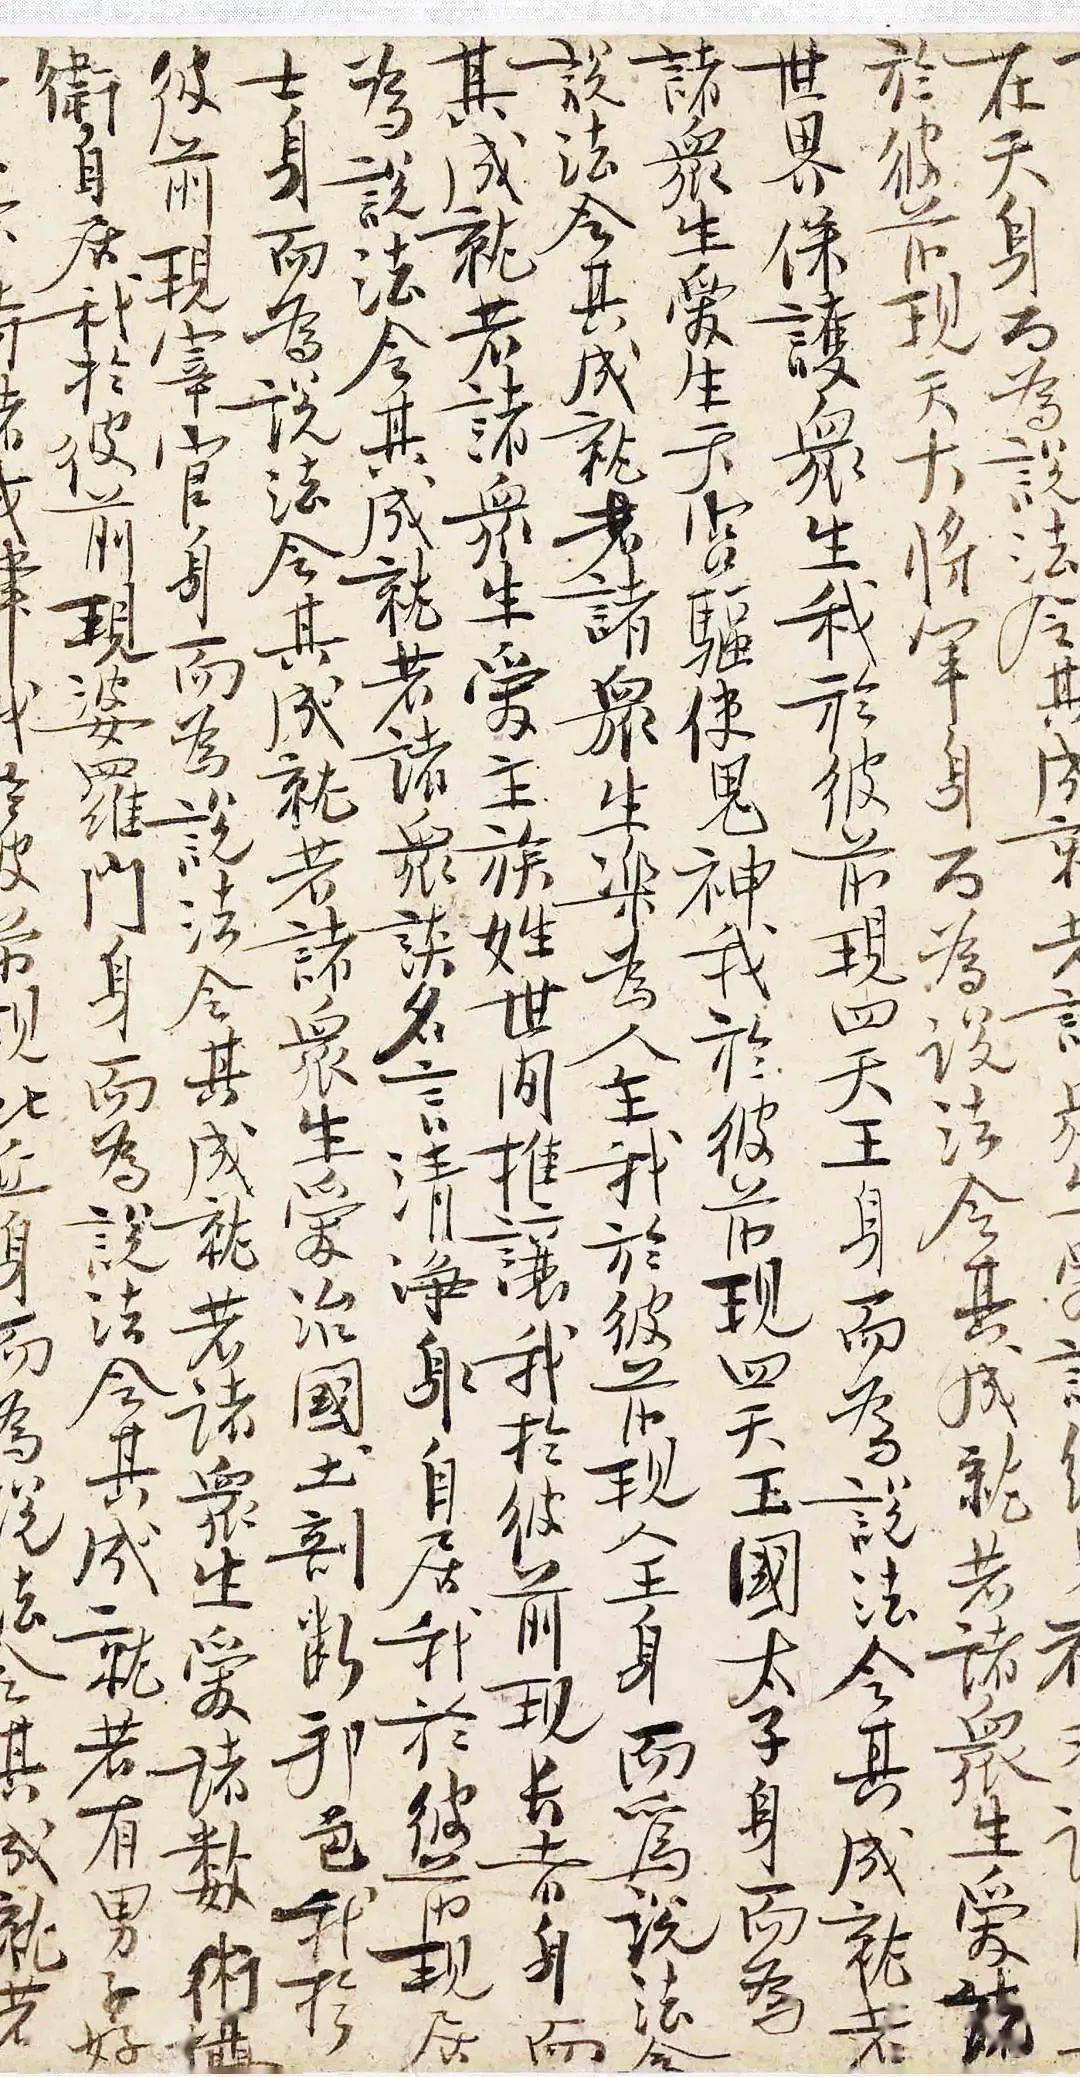 在天身而為說法令其成就若諸眾生愛
於彼前現天大將軍身而為說法令其成就若諸眾生愛統
世界保護眾生我於彼前現四天王身而為說法令其成就若
諸眾生愛生天宮驅使鬼神我於彼前現四天王國太子身而為
說法令其成就若諸眾生樂為人主我於彼前現人王身而為說法令
其成就若諸眾生愛主族姓世間推讓我於彼前現長者身而
為說法令其成就若諸眾談名言清淨身自居我於彼前現居
士身而為說法令其成就若諸眾生愛治國土剖斷邦邑我於
彼前現宰官身而為說法令其成就若諸眾生愛諸數術攝
衛自居我於彼前現婆羅門身而為說法令其成就若有男子好
彼前現比丘身而為說法令其成就若